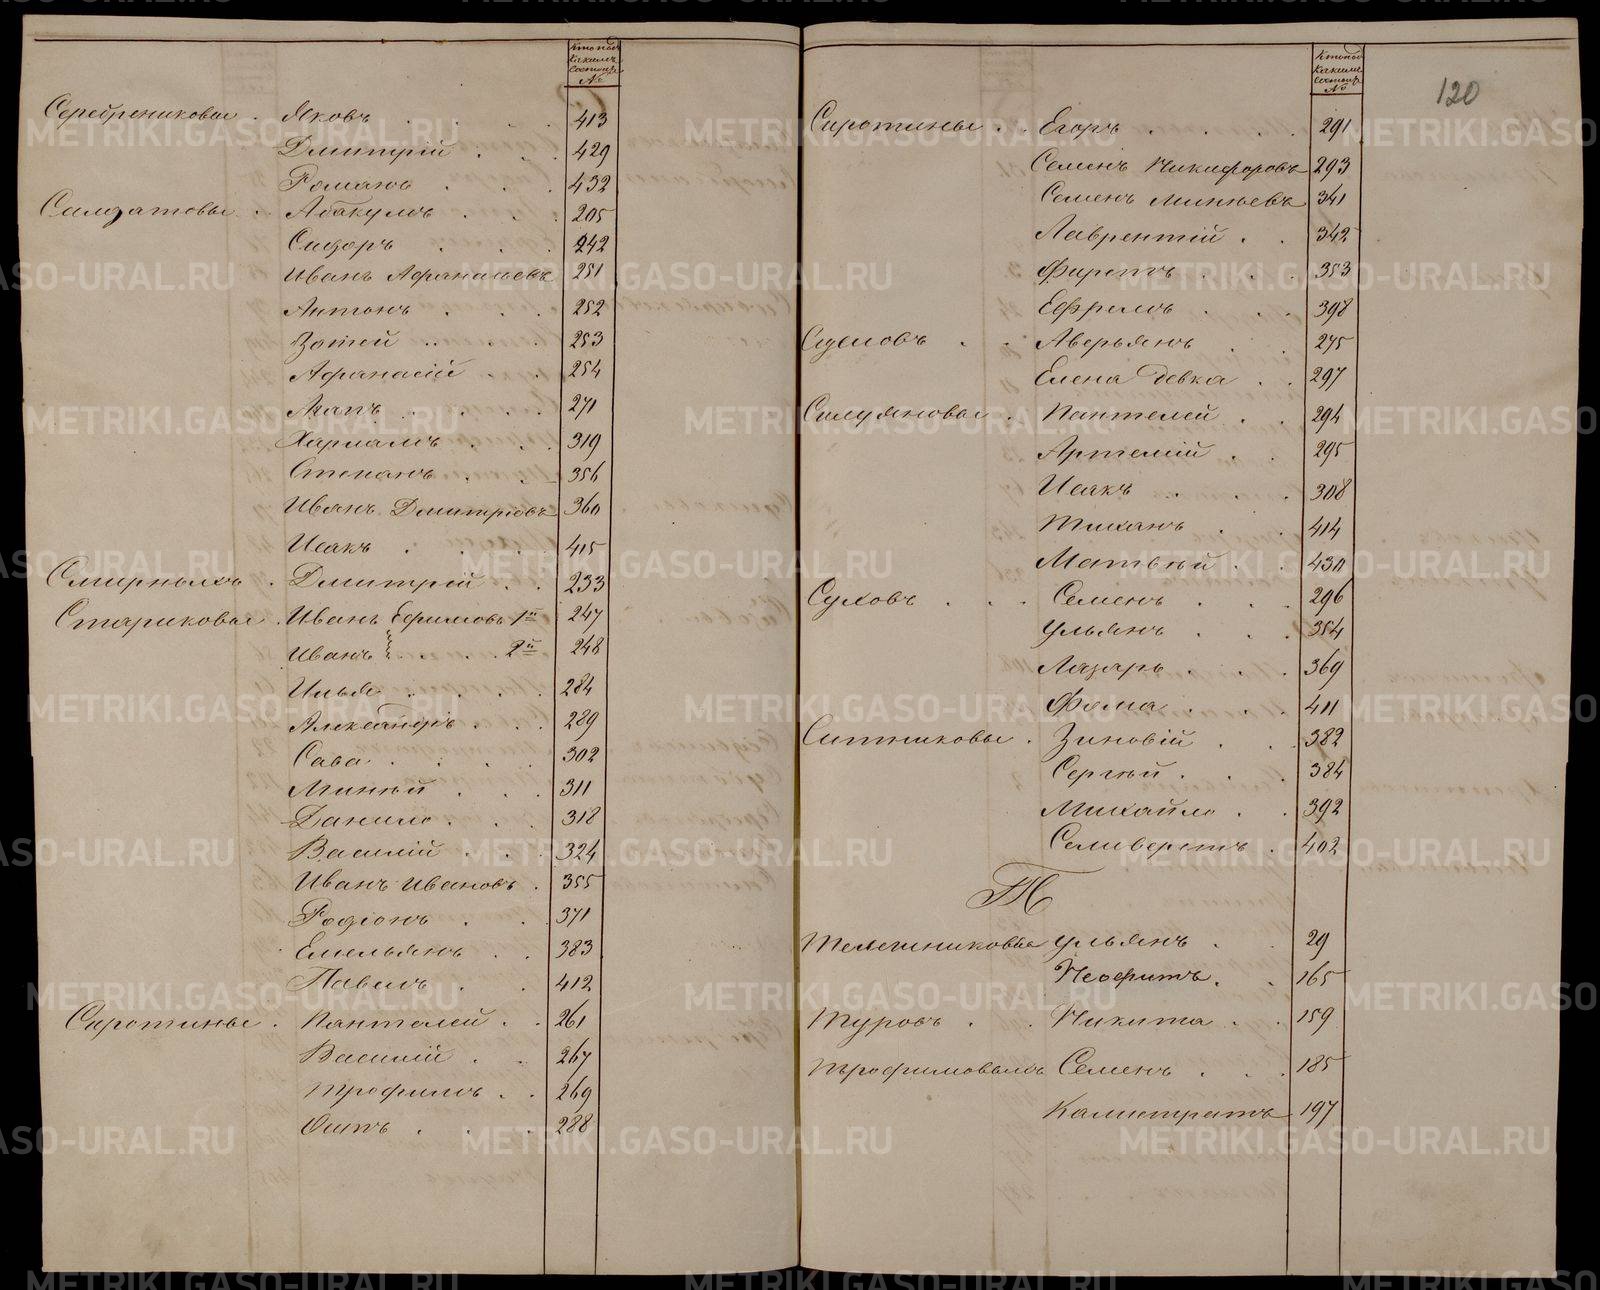 Кто под
какимъ
состоитъ
№
Серебрениковы . Яковъ . . . . 413
Дмитрій . . . 429
Романъ . . . 432
Салдатовы . Абакумъ . . . 205
Сидоръ . . . 242
Иванъ Афанасьевъ 251
Антонъ . . . 252
Зотей . . . 253
Афанасій . . . 254
Агапъ . . . . 271
Харламъ . . . 319
Степанъ . . . 356
Иванъ Дмитріевъ 360
Исакъ . . . . 415
Смирныхъ . Дмитрій . . . 233
Стариковы . Иванъ Ефимовъ 1й 247
Иванъ . . . . 2й 248
Илья . . . . 284
Александръ . . . 289
Сава . . . . 302
Миней . . . 311
Данило . . . 318
Василій . . . 324
Иванъ Ивановъ . 355
Родіонъ . . . 371
Емельянъ . . . 383
Павелъ . . . 412
Сиротины . Пантелей . . 261
Василій . . . 267
Трофимъ . . 269
Осипъ . . . . 288
Кто под
какимъ
состоитъ
№
120
Сиротины . . Егоръ . . . . 291
Семенъ Никифоровъ 293
Семенъ Минеевъ 341
Лаврентій . . 342
Фирстъ . . . 353
Ефремъ . . . 398
Суслов . . Аверьянъ . . 275
Елена Девка . . 297
Силуяновы . Пантелей . . 294
Артемій . . 295
Исакъ . . . . 308
Тиханъ . . . 414
Матвей . . . 430
Суховъ . . . Семенъ . . . 296
Ульянъ . . . 354
Лазарь . . . 369
Фома . . . . 411
Ситниковы . Зиновій . . . 382
Сергей . . . 384
Михайло . . 392
Селиверстъ . 402
Т
Телегниковы Ульянъ . . 29
Неофитъ . . 165
Туровъ . . Никита . . 159
Трофимовыхъ Семенъ . . . 185
Калистратъ 197
METRIKI.GASO-URAL.RU